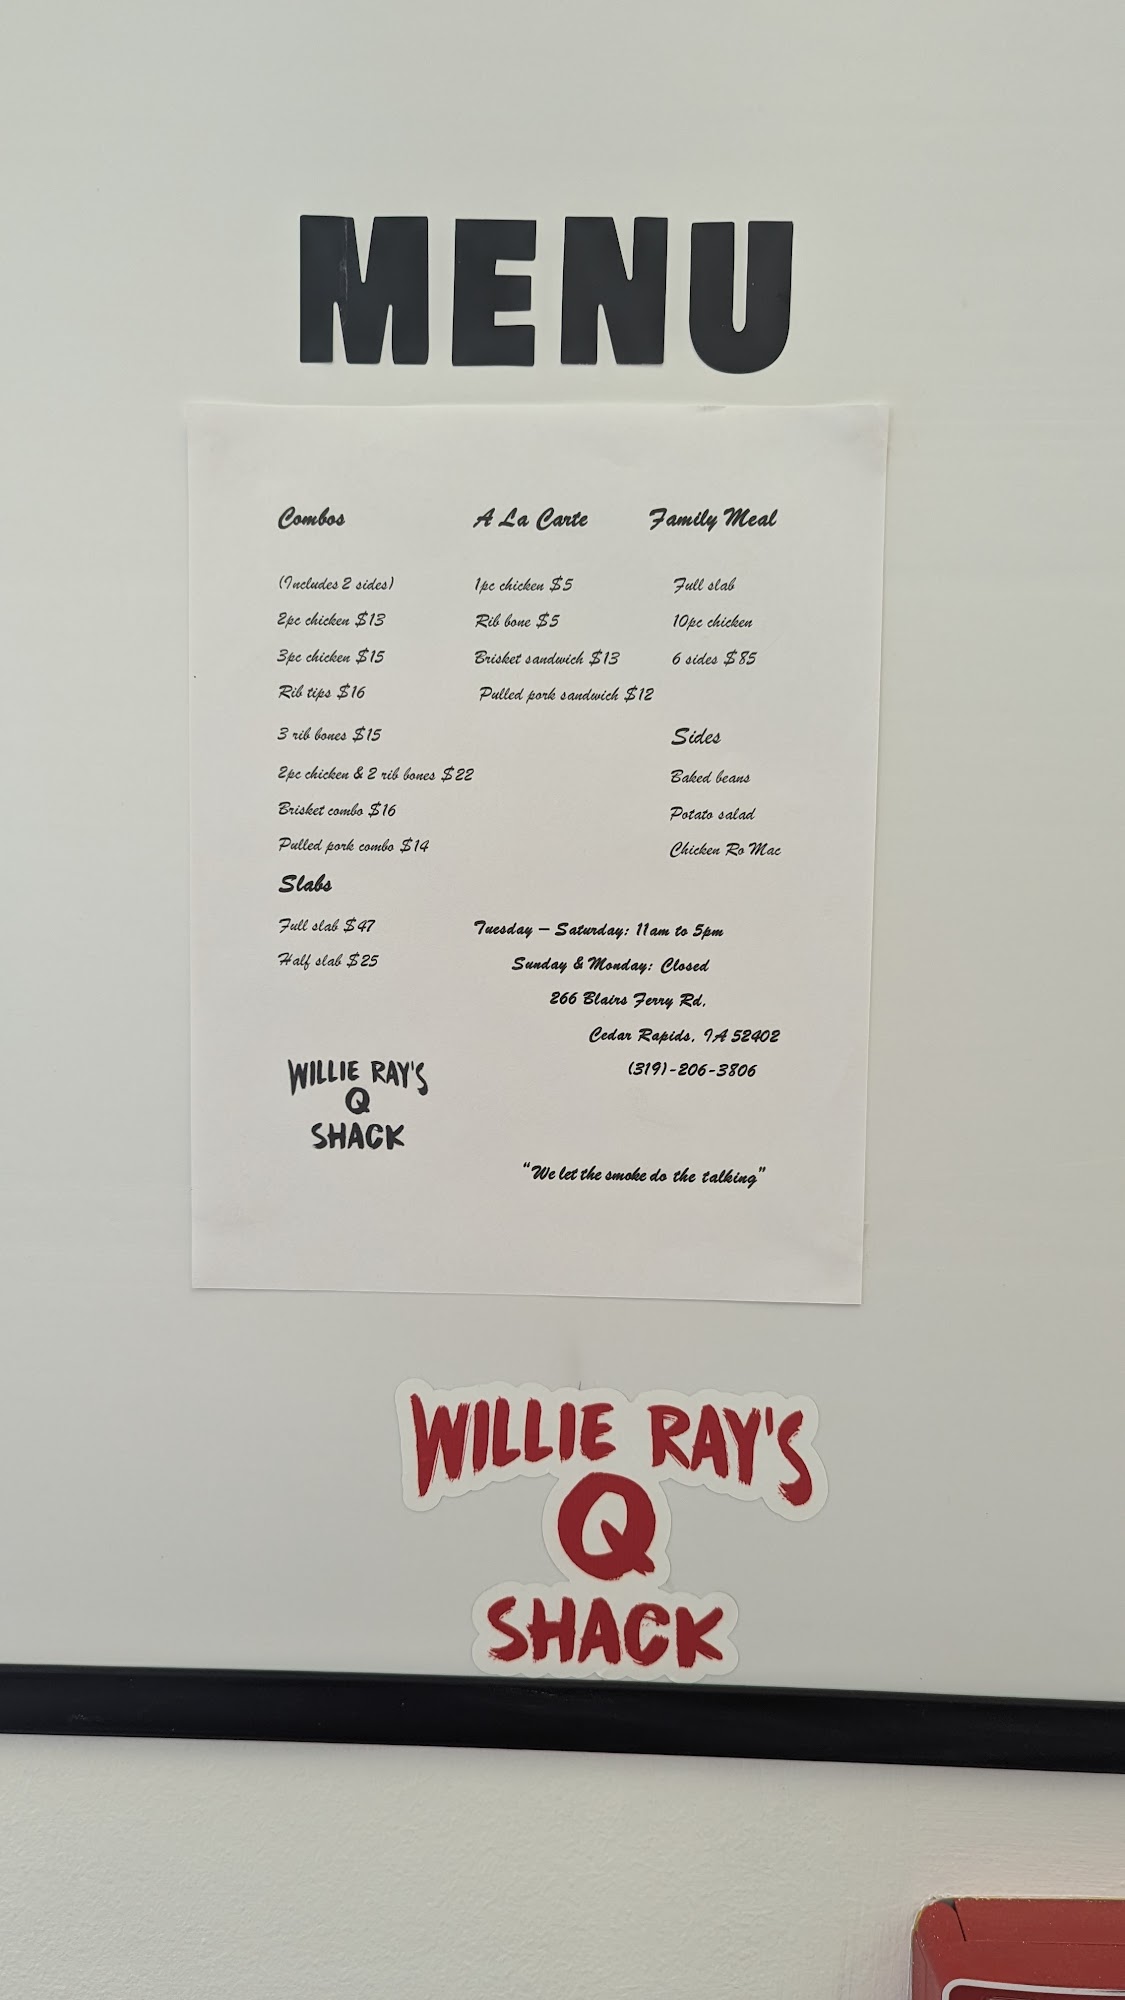 MENU
Combos
(Includes 2 sides)
2pc chicken $13
3pc chicken $15
Rib tips $16
3 rib bones $15
2pc chicken & 2 rib bones $22
Brisket combo $16
Pulled pork combo $14
Slabs
Full slab $47
Half slab $25
A La Carte
1pc chicken $5
Rib bone $5
Brisket sandwich $13
Pulled pork sandwich $12
Family Meal
Full slab
10pc chicken
6 sides $85
Sides
Baked beans
Potato salad
Chicken Ro Mac
Tuesday – Saturday: 11am to 5pm
Sunday & Monday: Closed
266 Blairs Ferry Rd,
Cedar Rapids, IA 52402
(319)-206-3806
WILLIE RAY'S
Q
SHACK
“We let the smoke do the talking”
WILLIE RAY'S
Q
SHACK